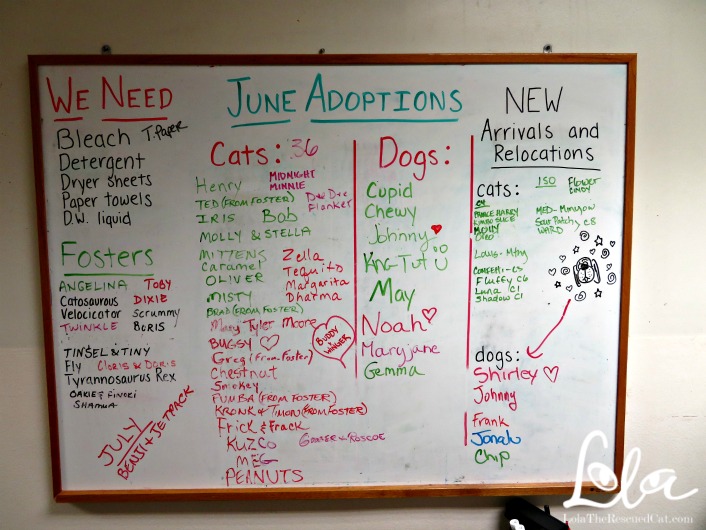 WE NEED
Bleach T. PAPER
Detergent
Dryer sheets
Paper towels
D.W. liquid
Fosters
ANGELINA TOBY
Catosaurous DIXIE
Velocicator Scrummy
TWINKLE BORIS
TINSEL & TINY
Fly CLORIS & DORIS
Tyrannosaurus Rex
OAKIE &
SHAMUA
JULY
BENJI & JETPACK
JUNE ADOPTIONS
Cats: 36
Henry MIDNIGHT
MINNIE
TED (FROM FOSTER) Dee Dee
Flanker
IRIS Bob
MOLLY & STELLA
MITTENS Zella
Caramel Tequito
OLIVER Margarita
MISTY Dharma
BRAD (FROM FOSTER)
Mary Tyler Moore
BUGSY
BUDDY
Greg (from Foster)
Chestnut
Smokey
PUMBA (FROM FOSTER)
KRONK & TIMON (FROM FOSTER)
Frick & Frack
KUZCO GOMER & ROSCOE
MEG
PEANUTS
Dogs:
Cupid
Chewy
Johnny
King-Tut
May
Noah
Maryjane
Gemma
NEW
Arrivals and
Relocations
cats: ISO Flower
CINDY
PRINCE HARRY MED-
Sour Patch, C8
MOLLY WARD
OREO
CONFETTI - C5
Fluffy C6
Luna C1
Shadow C1
dogs:
Shirley
Johnny
Frank
Jonah
Chip
Lola
LolaTheRescuedCat.com